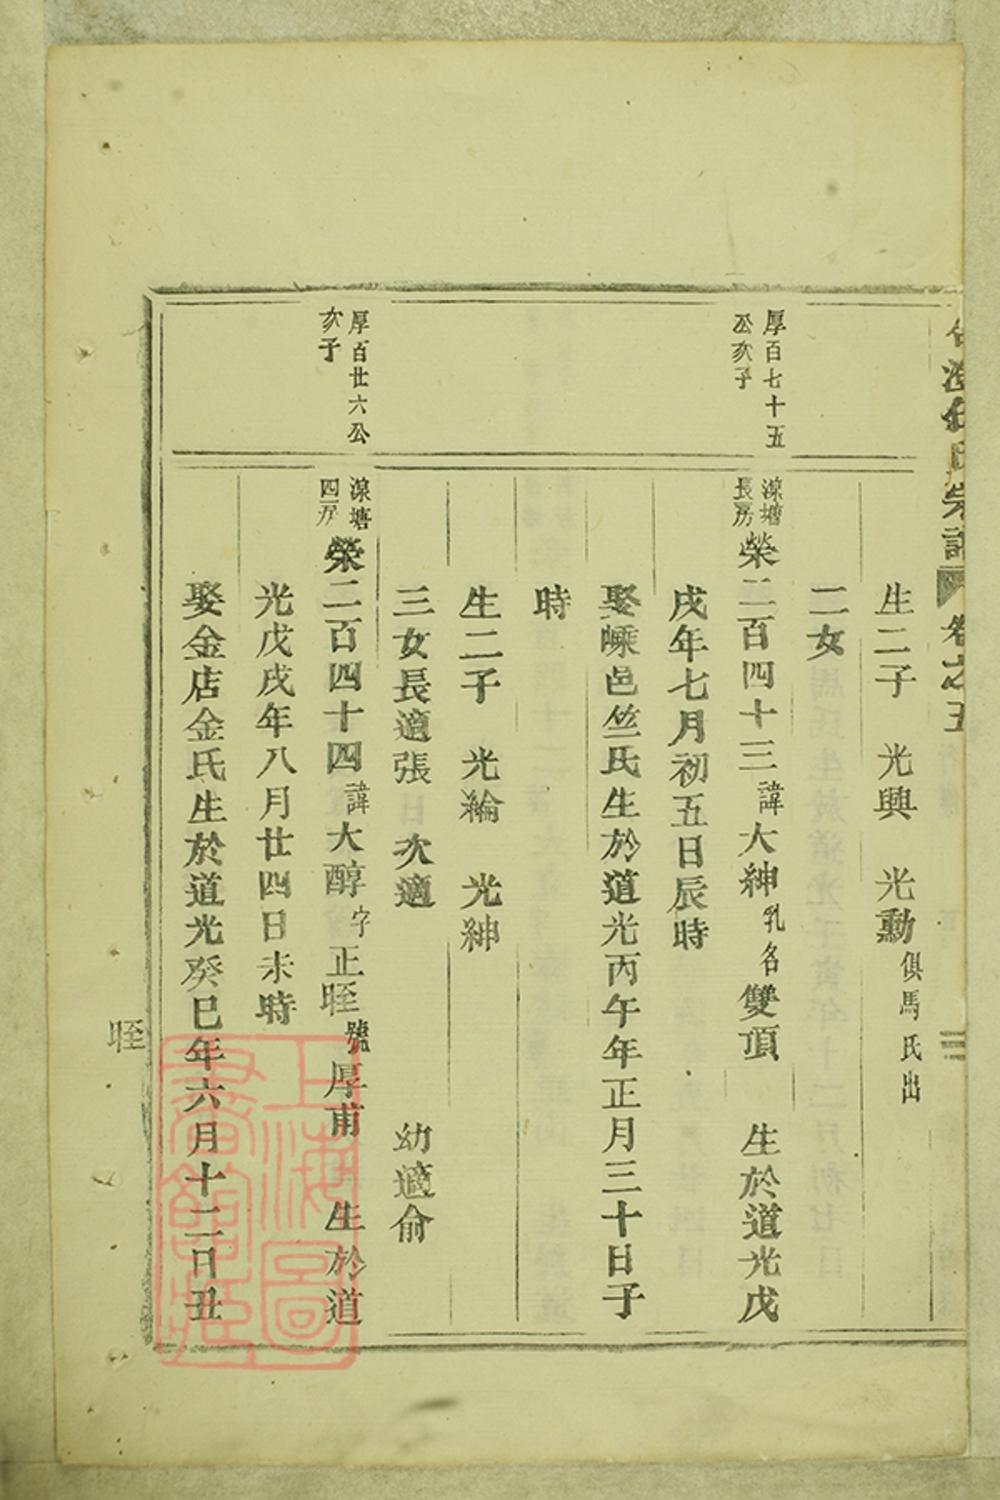 氏宗譜 卷之五
生二子 光興 光勳 俱馬氏出
二女
厚百七十五
公次子
湶塘
長房
榮二百四十三 諱大紳 乳名雙頂 生於道光戊
戌年七月初五日辰時
娶嵊邑竺氏生於道光丙午年正月三十日子
時
生二子 光綸 光紳
三女長適張 次適 幼適俞
厚百廿六公
次子
湶塘
四房
榮二百四十四 諱大醇 字正眰 號厚甫 生於道
光戊戌年八月廿四日未時
娶金店金氏生於道光癸巳年六月十二日丑
眰
上海圖
書館藏